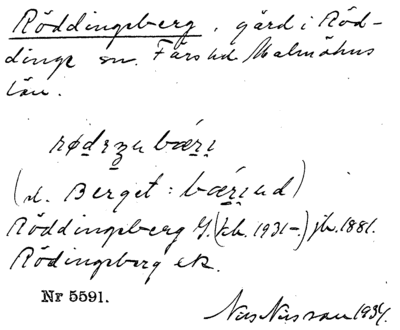 Röddingsberg, gård i Röd-
dinge sn. Färs hd Malmöhus
län.
rødɪzn bæri
(el. Berget: bærɪnd)
Röddingsberg G. (kb. 1931-) jb. 1881.
Rödingsberg ek.
Nr 5591.
Nils Nilsson 1934.